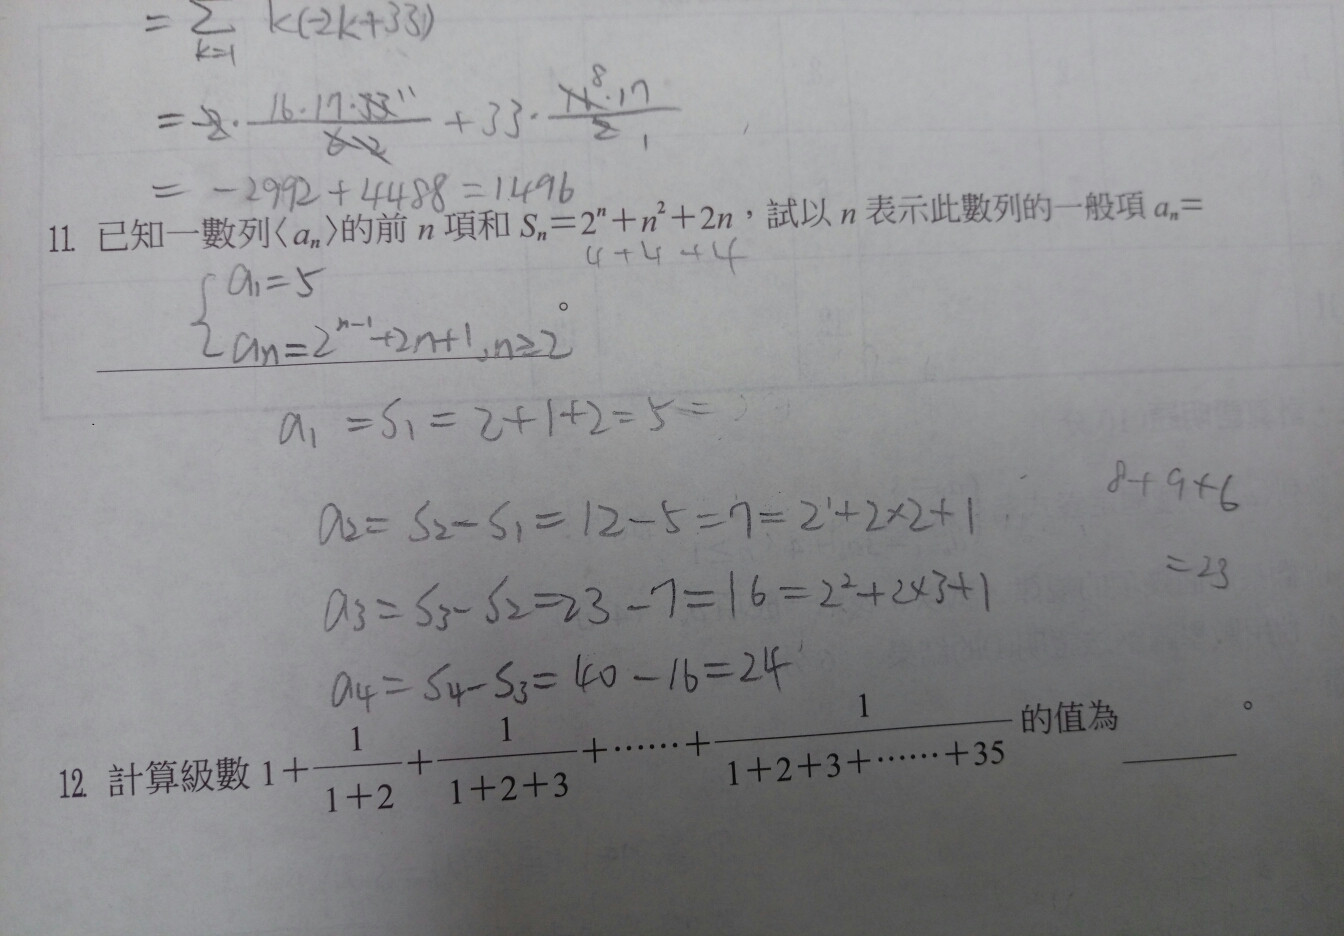 = ∑ k(-2k+33)
k=1
= -2· 16·17·33 11 / 6 2 + 33· 16 8·17 / 2 1
= -2992+4488=1496
11. 已知一數列〈aₙ〉的前 n 項和 Sₙ=2ⁿ+n²+2n，試以 n 表示此數列的一般項 aₙ=
4+4+4
{ a₁=5
aₙ=2ⁿ⁻¹+2n+1, n≥2 。
a₁=S₁=2+1+2=5=
8+9+6
a₂=S₂-S₁=12-5=7=2¹+2×2+1
=23
a₃=S₃-S₂=23-7=16=2²+2×3+1
a₄=S₄-S₃=40-16=24
12. 計算級數 1+1/(1+2)+1/(1+2+3)+……+1/(1+2+3+……+35) 的值為 ______ 。